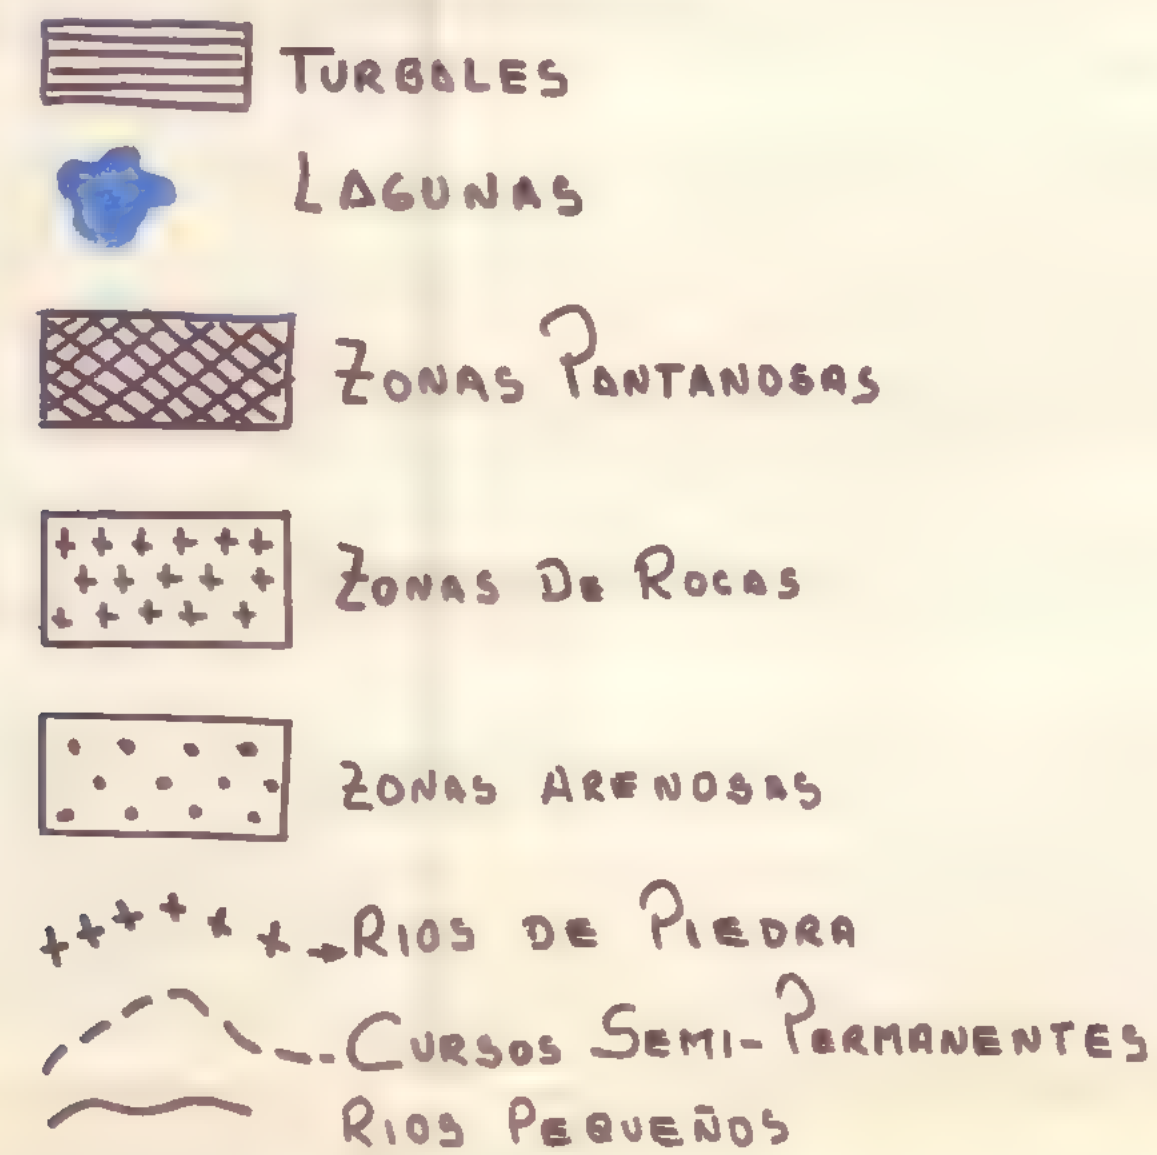 TURBALES
LAGUNAS
ZONAS PANTANOSAS
ZONAS DE ROCAS
ZONAS ARENOSAS
RIOS DE PIEDRA
CURSOS SEMI-PERMANENTES
RIOS PEQUEÑOS